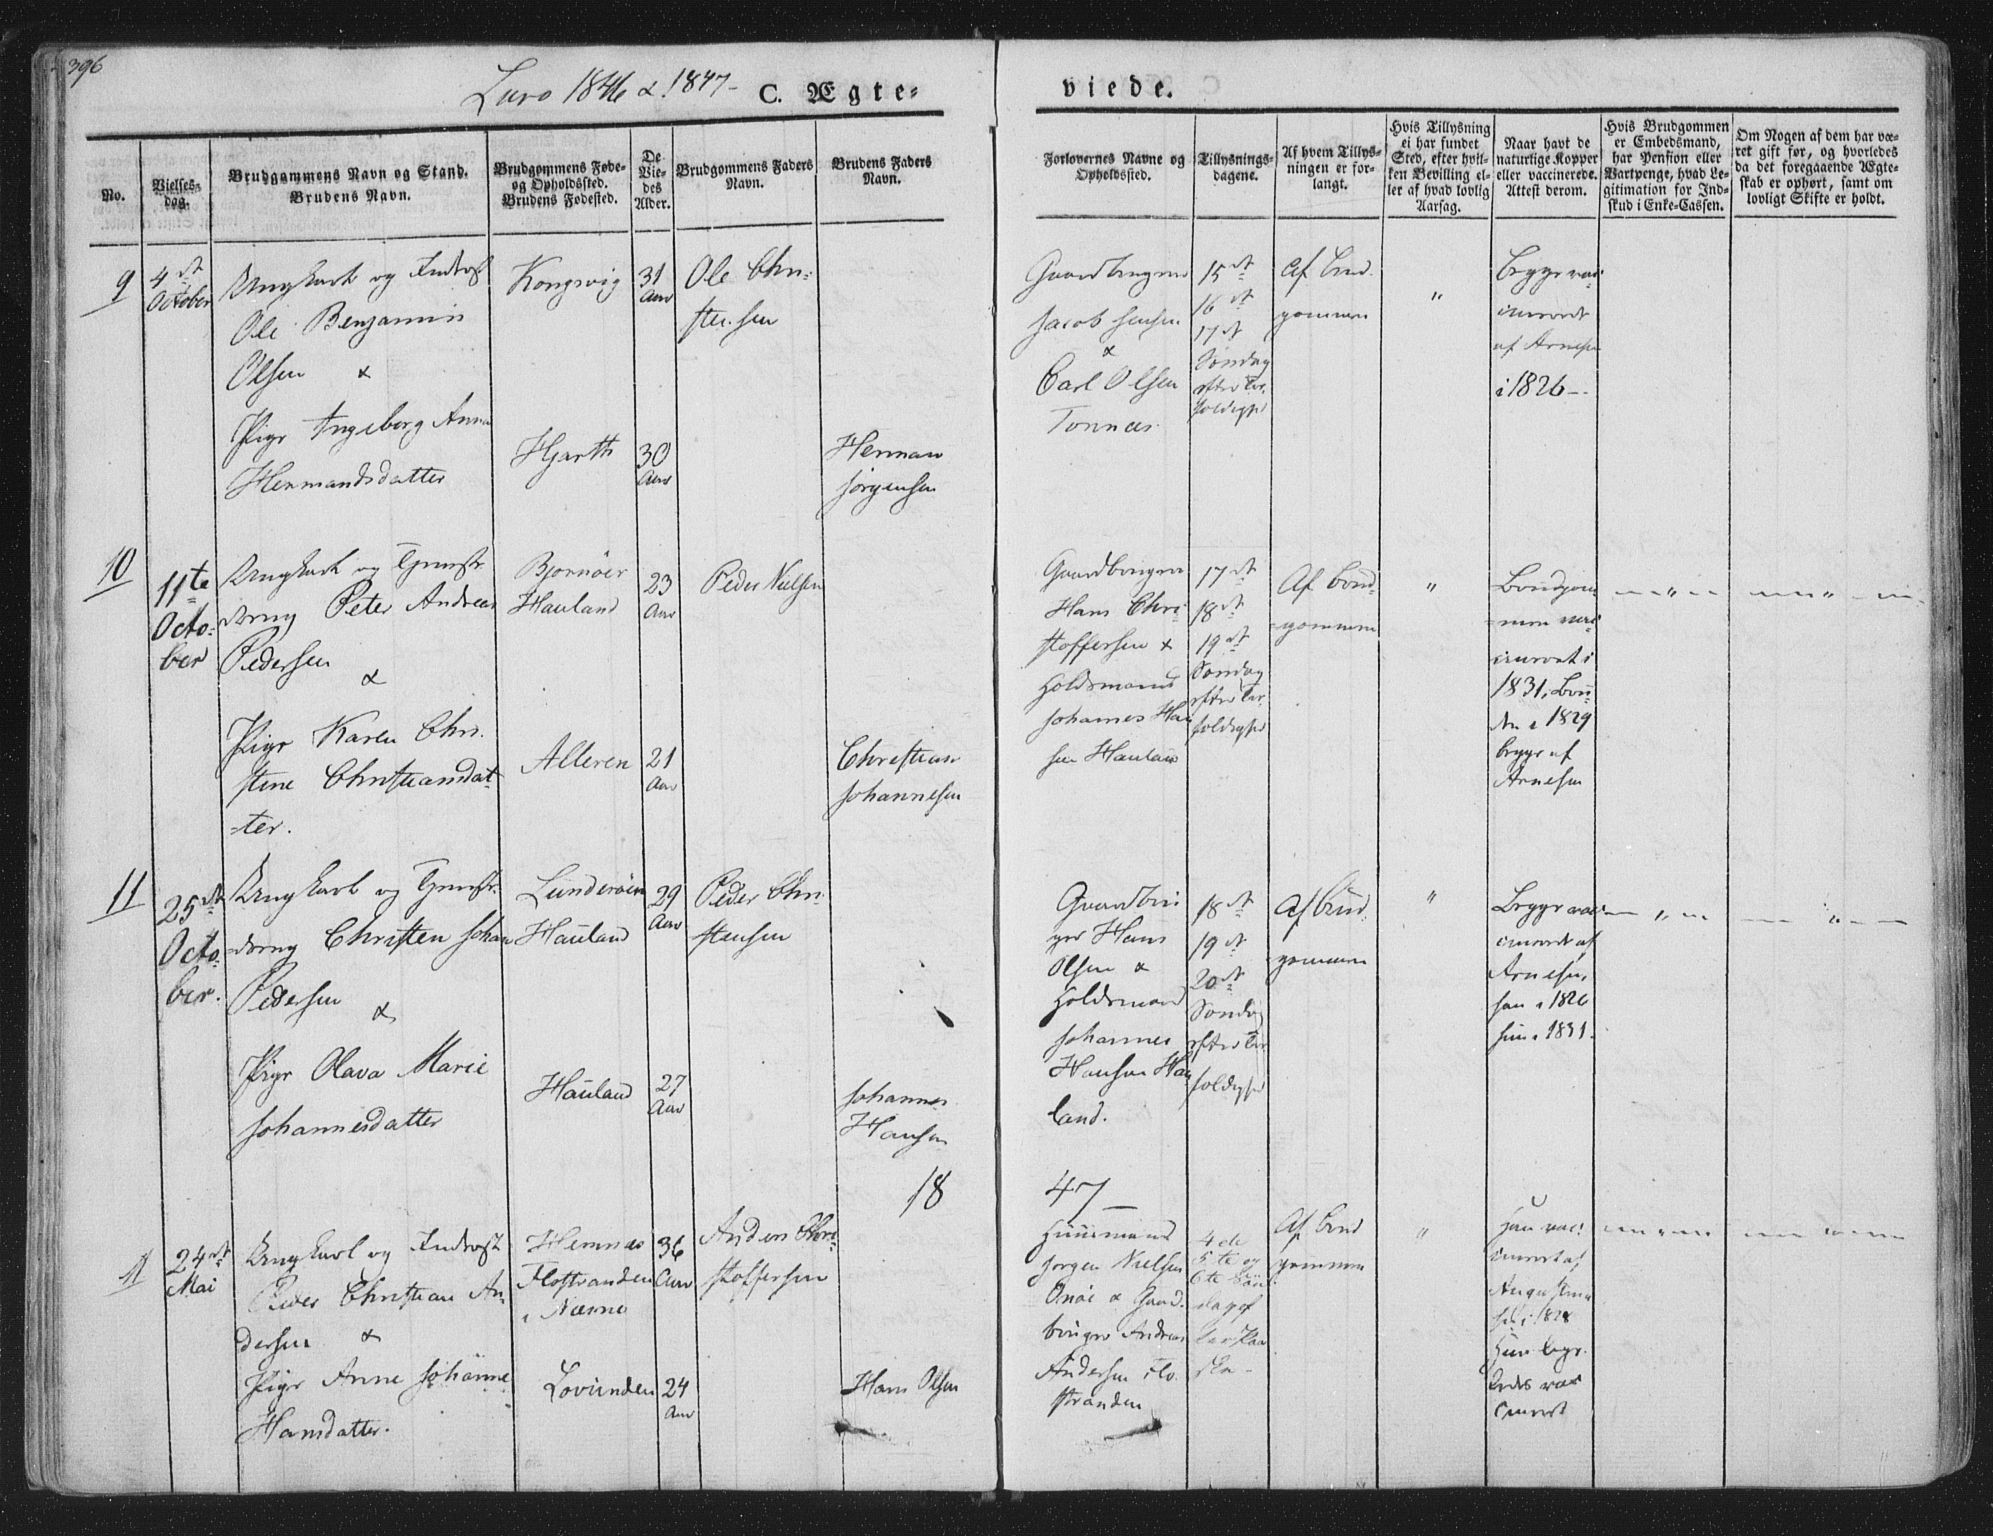 396
Lurö 1846 & 1847-
C. Ægte-
viede.
No.
Vielses-
dag.
Brudgommens Navn og Stand.
Brudens Navn.
Brudgommens Føde-
og Opholdssted.
Brudens Fødested.
De
Vie-
des
Alder.
Brudgommens Faders
Navn.
Brudens Faders
Navn.
Forlovernes Navne og
Opholdssted.
Tillysnings-
dagene.
Af hvem Tillys-
ningen er for-
langt.
Hvis Tillysning
ei har fundet
Sted, efter hvil-
ken Bevilling el-
ler af hvad lovlig
Aarsag.
Naar havt de
naturlige Kopper
eller vaccinerede.
Attest derom.
Hvis Brudgommen
er Embedsmand,
har Pension eller
Vartpenge, hvad Le-
gitimation for Ind-
skud i Enke-Cassen.
Om Nogen af dem har væ-
ret gift før, og hvorledes
da det foregaaende Ægte-
skab er ophørt, samt om
lovligt Skifte er holdt.
9
4de
October
Ungkarl og Inderst
Ole Benjamin
Olsen &
Pige Ingeborg Anna
Hermandsdatter
Kongsvig
Hjarth
31
Aar
30
Aar
Ole Chri-
stensen
Herman
Jörgensen
Gaardbruger
Jacob Jensen
&
Carl Olsen
Tonnæs
15de
16de
17de
Söndag
efter Tre-
foldighed
Af Brud-
gommen
"
Begge vac-
cineret
af Arnesen
i 1826-.
10
11te
Octo-
ber
Ungkarl og Tjeneste-
dreng Peter Andreas
Pedersen
&
Pige Karen Chri-
stine Christiansdat-
-ter.
Björnöer
Hauland
Alteren
23
Aar
21
Aar
Peder Nielsen
Christian
Johannesen
Gaardbruger
Hans Chri-
stoffersen &
Holdsmand
Johannes Han-
sen Hauland
17de
18de
19de
Söndag
efter Tre-
foldighed
Af Brud-
-gommen
"
Brudgom-
men vac-
cineret i
1831, Bru-
den i 1829
begge af
Arnesen
11
25de
Octo-
ber.
Ungkarl og Tjeneste-
-dreng Christen Johan
Pedersen
&
Pige Olava Marie
Johannesdatter
Hauland
Hauland
29
Aar
27
Aar
Peder Chri-
stensen
Johannes
Hansen
Gaardbru-
ger Hans
Olsen &
Holdsmand
Johannes
Hansen Hau-
land.
18de
19de
20de
Söndag
efter Tre-
foldighed
Af Brud-
-gommen
"
Begge vac-
cineret af
Arnesen,
han i 1826
hun i 1831.
18
47
1
24de
Mai
Ungkarl og Inderst
Peder Christian An-
dersen &
Pige Anne Johanne
Hansdatter.
Hemnæs
Flostranden
i Næsne
Lovunden
36
Aar
24
Aar
Anders Chri-
stoffersen
Hans Olsen
Huusmand
Jörgen Nielsen
Onöe & Gaard-
bruger Andreas
Andersen Flo-
stranden
4de
5te og
6te Sön-
dag ef-
ter Paa-
ske-
Af Brud
gommen
"
Han vac-
cineret af
Augustin-
i 1828
Hun lige-
ledes vac-
cineret